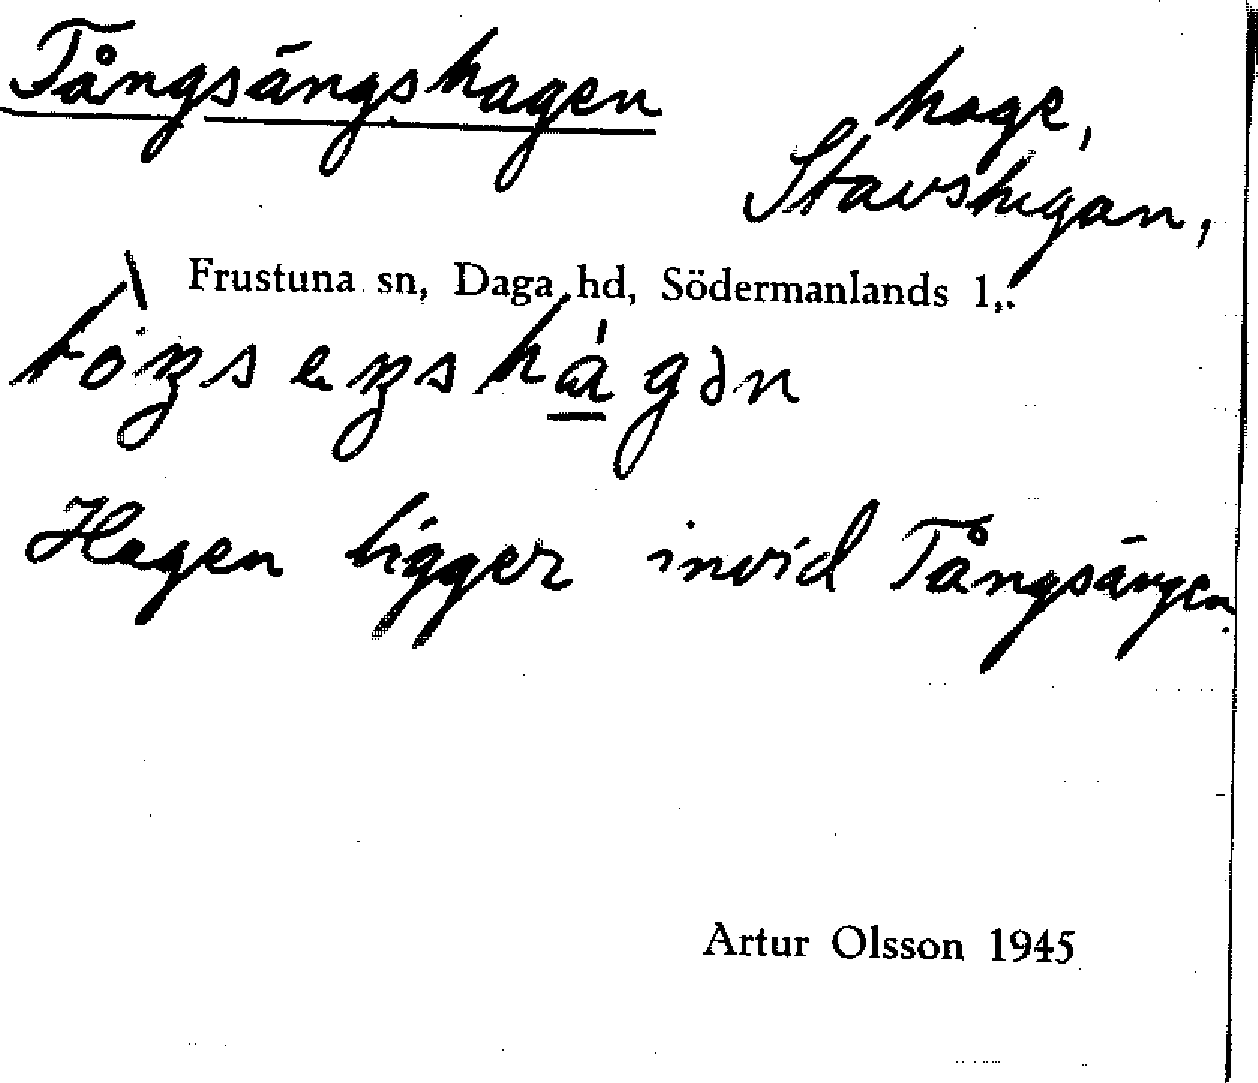 Tångsängshagen
hage,
Stavstugan,
Frustuna sn, Daga hd, Södermanlands l..
tòŋseŋshágən
Hagen ligger invid Tångsängen.
Artur Olsson 1945